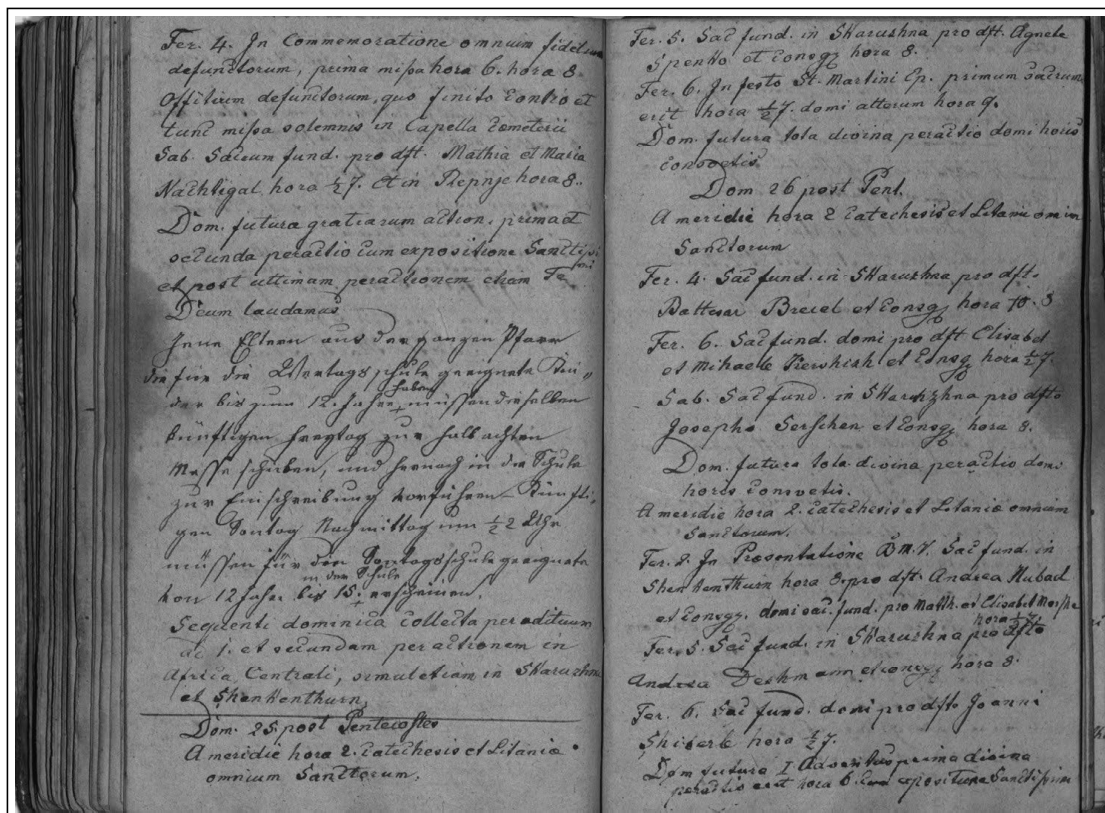 Fer. 4. In Commemoratione omnium fidelium
defunctorum, prima missa hora 6. hora 8
Offitium defunctorum, quo finito Contio et
tunc missa solemnis in Capella Cœmeterii
Sab. Sacrum fund. pro dft. Mathia et Maria
Nachtigal hora ½7. et in Repnje hora 8.
Dom. futura gratiarum action. prima et
secunda peractio cum expositione Sanctissimi
et post ultimam peractionem etiam Te
Deum laudamus
Jene Eltern aus der ganzen Pfarr
die für die Werktagsschule geeignete Kin„
der bis zum 12. Jahre haben, müssen dieselben
künftigen Freytag zur halb achten
Messe schicken, und hernach in die Schule
zur Einschreibung vorführen. Künfti„
gen Sontag Nachmittag um ½2 Uhr
müssen für die Sontagsschule geeignete
von 12 Jahr bis 15. in der Schule erscheinen.
Sequenti dominica Collecta per aditum
ac 1. et secundam peractionem in
Africa Centrali, simul etiam in Skaruzhna
et Shenkenthurn
Dom. 25 post Pentecostes
A meridie hora 2. Catechesis et Litaniæ
omnium Sanctorum.
Fer. 5. Sac fund. in Skaruzhna pro dft. Agnete
Spenko et Consgg hora 8.
Fer. 6. In festo St. Martini Ep. primum Sacrum
erit hora ½7. domi alterum hora 9.
Dom. futura tota divina peractio domi horis
consvetis.
Dom 26 post Pent.
A meridie hora 2 Catechesis et Litaniæ omnium
Sanctorum
Fer. 4. Sac fund. in Skaruzhna pro dft.
Baltasar et Consgg hora 8
Fer. 6. Sac fund. domi pro dft Elisabet
et Mihaele et Consgg hora ½7.
Sab. Sac fund. in Skaruzhna pro dfto
Josepho Serschen et Consgg hora 8.
Dom. futura tota divina peractio domi
horis consvetis.
A meridie hora 2. Catechesis et Litaniæ omnium
Sanctorum.
Fer. 2. In Præsentatione B.M.V. Sac fund. in
Shenkenthurn hora 8. pro dft. Andrea Hubad
et Consgg. domi sac. fund. pro Matth. et Elisabet
hora ½7.
Fer. 5. Sac fund. in Skaruzhna pro dfto
Andrea Deshmann et consgg hora 8.
Fer. 6. Sac fund. domi pro dfto Joanni
Shiferle hora ½7.
Dom futura I Adventus prima divina
peractio erit hora 6. cum expositione Sanctissim